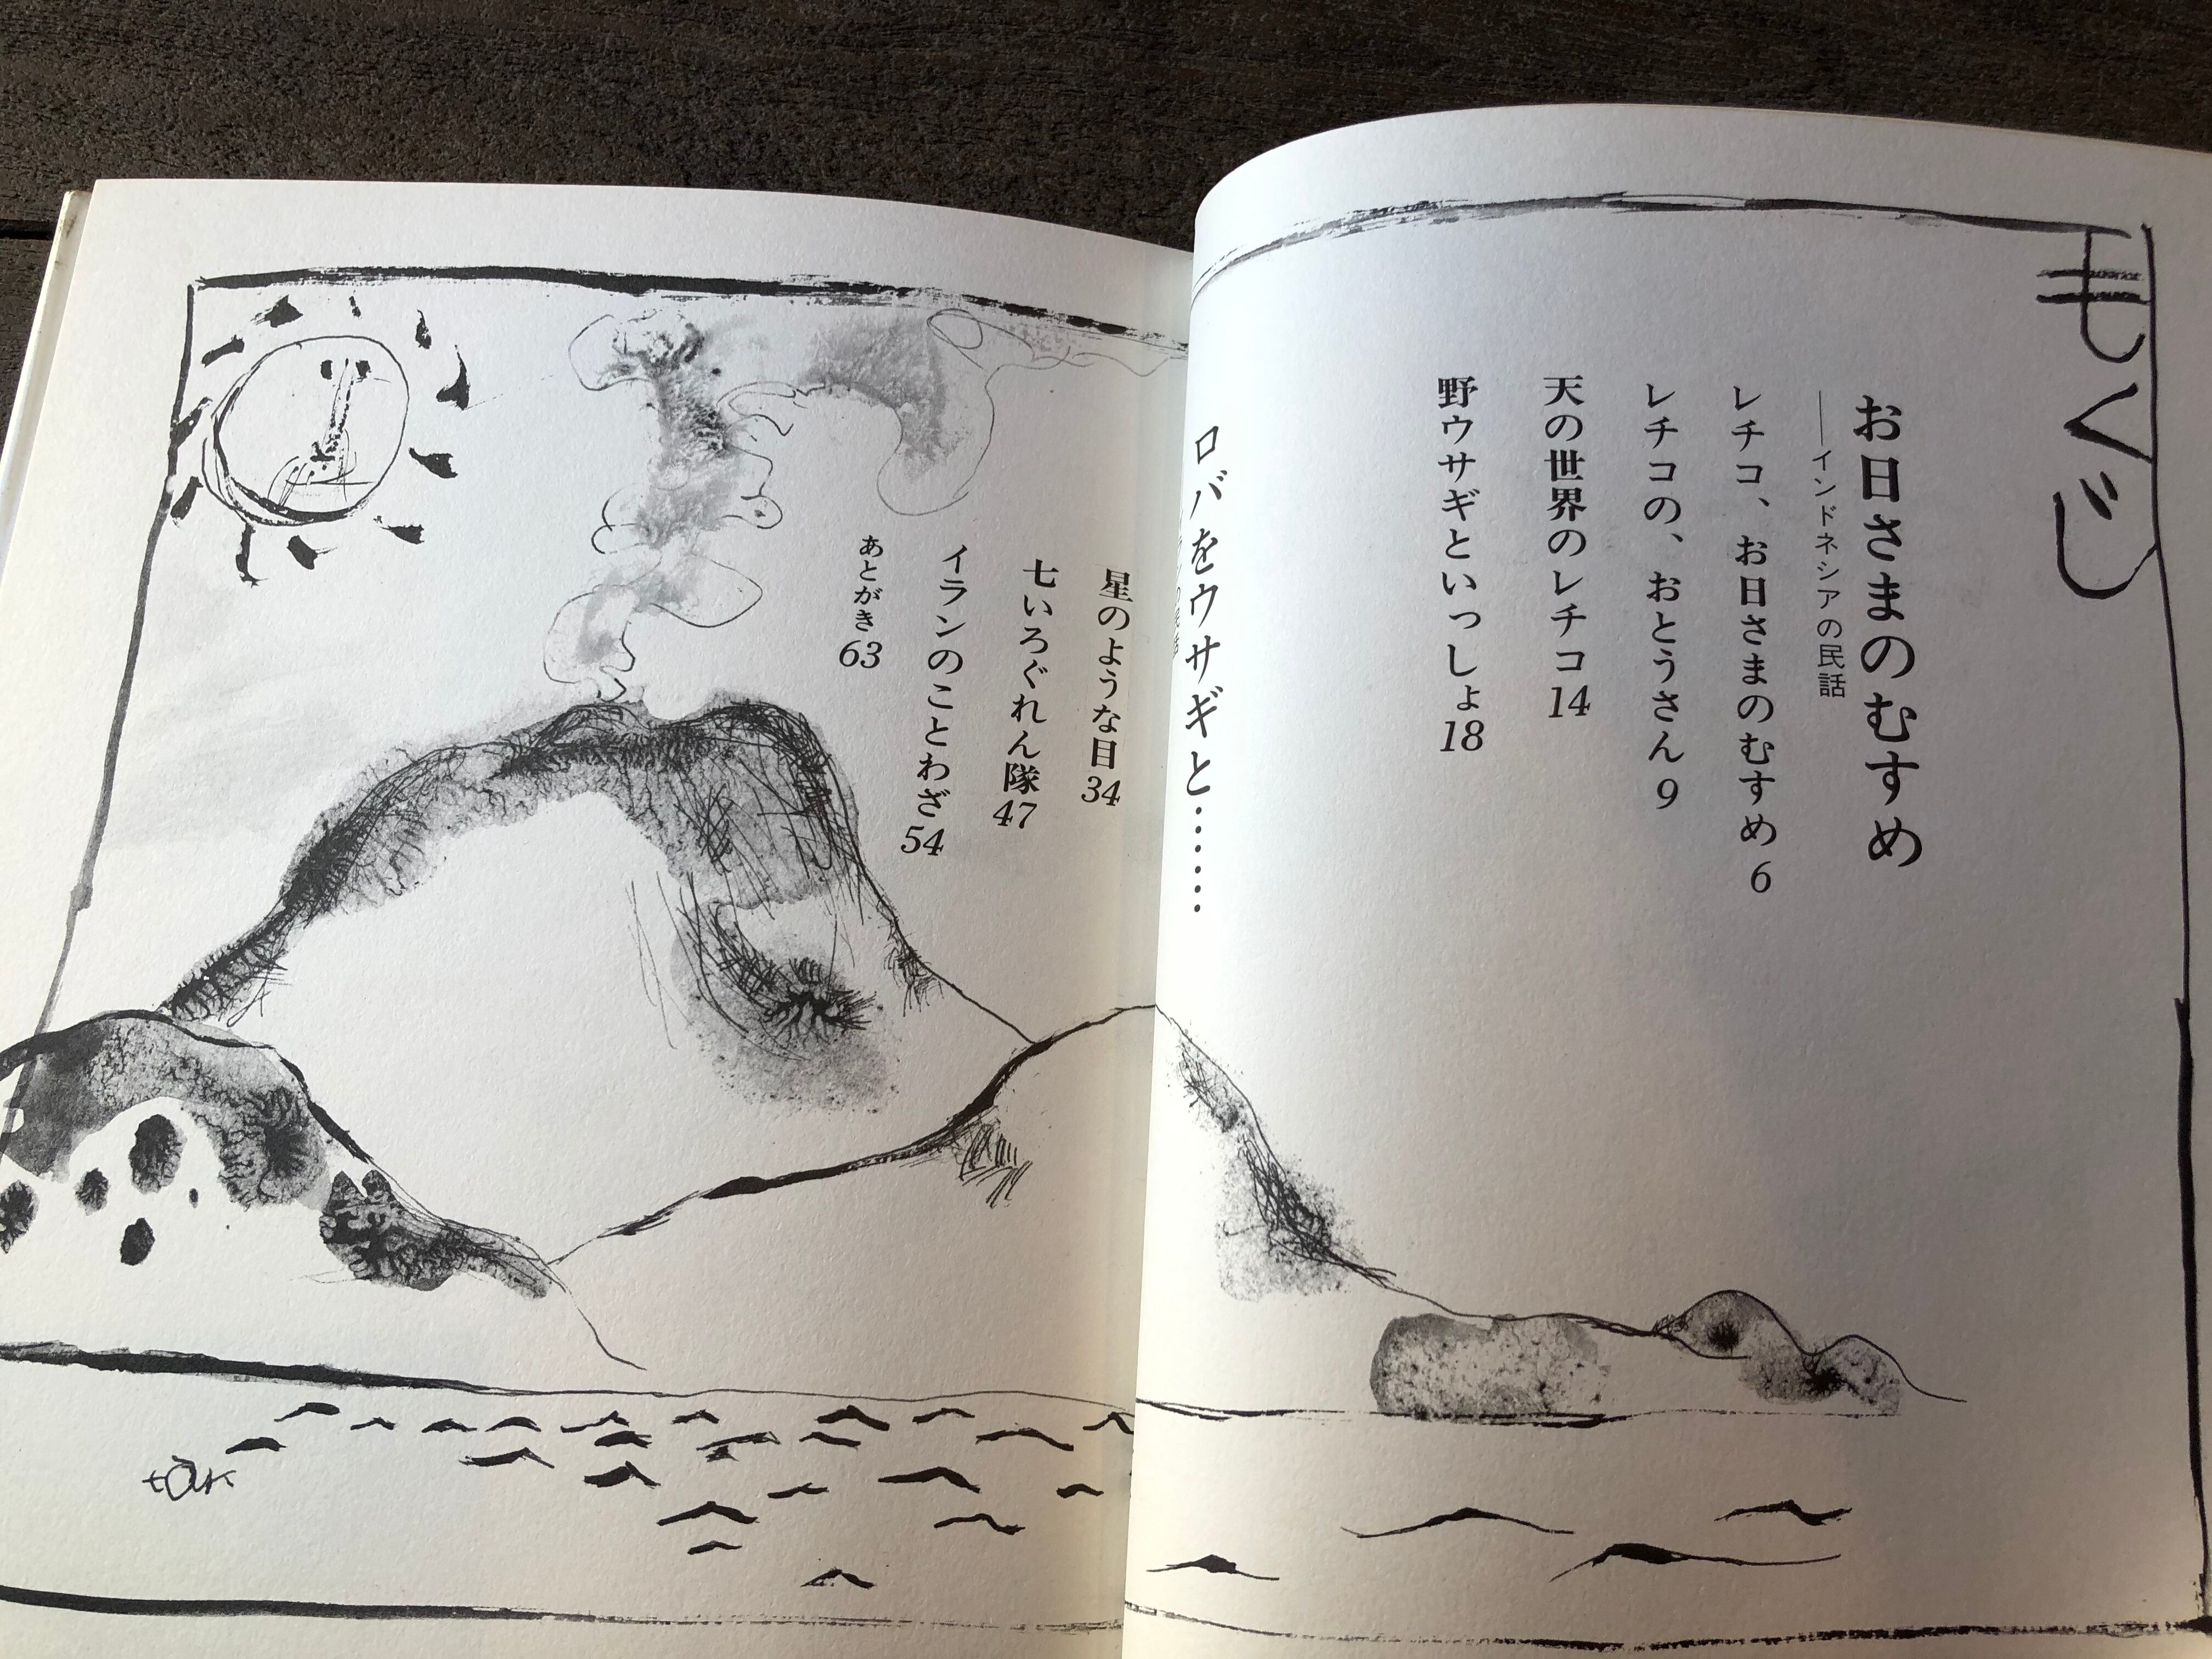 もくじ
お日さまのむすめ
――インドネシアの民話
レチコ、お日さまのむすめ6
レチコの、おとうさん9
天の世界のレチコ14
野ウサギといっしょ18
ロバをウサギと………
星のような目34
七いろぐれん隊47
イランのことわざ54
あとがき63